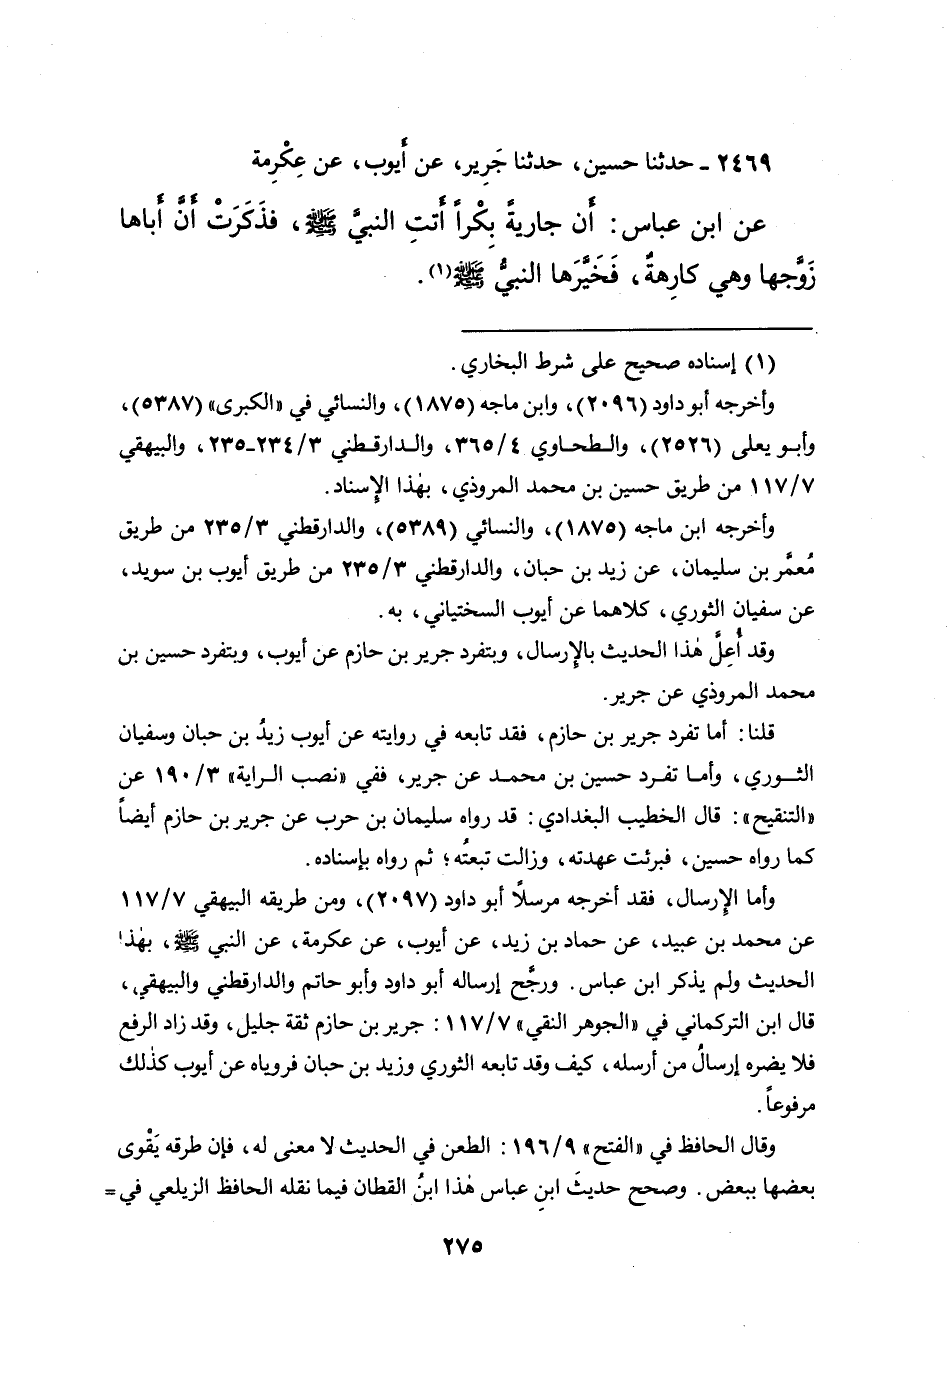 ٢٤٦٩ - حدثنا حسين، حدثنا جَرِير، عن أَيوب، عن عِكْرِمة
عن ابن عباس: أَن جاريةً بِكْراً أَتتِ النبيَّ ﷺ، فذَكَرَتْ أَنَّ أَباها
زَوَّجها وهي كارِهةٌ، فَخَيَّرَها النبيُّ ﷺ(١).
(١) إسناده صحيح على شرط البخاري.
وأخرجه أبو داود (٢٠٩٦)، وابن ماجه (١٨٧٥)، والنسائي في «الكبرى» (٥٣٨٧)،
وأبو يعلى (٢٥٢٦)، والطحاوي ٣٦٥/٤، والدارقطني ٢٣٤/٣-٢٣٥، والبيهقي
١١٧/٧ من طريق حسين بن محمد المروذي، بهٰذا الإسناد.
وأخرجه ابن ماجه (١٨٧٥)، والنسائي (٥٣٨٩)، والدارقطني ٢٣٥/٣ من طريق
مُعمَّر بن سليمان، عن زيد بن حبان، والدارقطني ٢٣٥/٣ من طريق أيوب بن سويد،
عن سفيان الثوري، كلاهما عن أيوب السختياني، به.
وقد أُعِلَّ هٰذا الحديث بالإرسال، وبتفرد جرير بن حازم عن أيوب، وبتفرد حسين بن
محمد المروذي عن جرير.
قلنا: أما تفرد جرير بن حازم، فقد تابعه في روايته عن أيوب زيدُ بن حبان وسفيان
الثوري، وأما تفرد حسين بن محمد عن جرير، ففي «نصب الراية» ١٩٠/٣ عن
«التنقيح»: قال الخطيب البغدادي: قد رواه سليمان بن حرب عن جرير بن حازم أيضاً
كما رواه حسين، فبرئت عهدته، وزالت تبعتُه؛ ثم رواه بإسناده.
وأما الإرسال، فقد أخرجه مرسلاً أبو داود (٢٠٩٧)، ومن طريقه البيهقي ١١٧/٧
عن محمد بن عبيد، عن حماد بن زيد، عن أيوب، عن عكرمة، عن النبي ﷺ، بهٰذا
الحديث ولم يذكر ابن عباس. ورجَّح إرساله أبو داود وأبو حاتم والدارقطني والبيهقي،
قال ابن التركماني في «الجوهر النقي» ١١٧/٧: جرير بن حازم ثقة جليل، وقد زاد الرفع
فلا يضره إرسالُ من أرسله، كيف وقد تابعه الثوري وزيد بن حبان فروياه عن أيوب كذٰلك
مرفوعاً.
وقال الحافظ في «الفتح» ١٩٦/٩: الطعن في الحديث لا معنى له، فإن طرقه يَقْوى
بعضها ببعض. وصحح حديثَ ابنِ عباس هٰذا ابنُ القطان فيما نقله الحافظ الزيلعي في=
٢٧٥